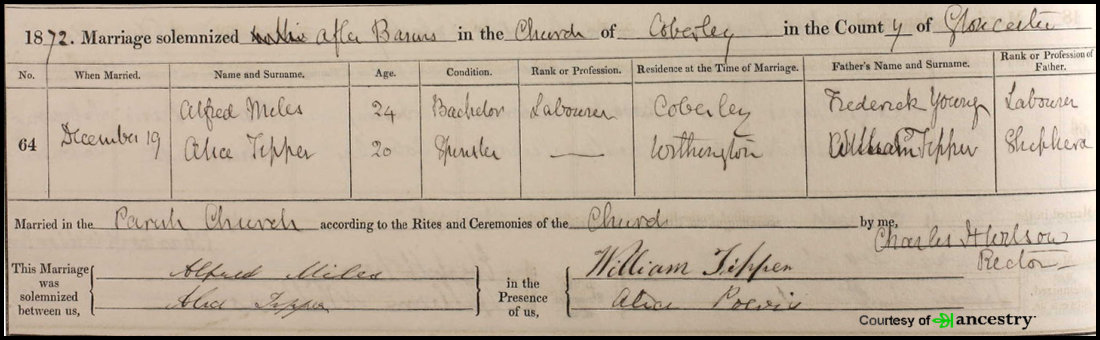 1872. Marriage solemnized after Banns in the Church of Coberley in the County of Gloucester
No. When Married. Name and Surname. Age. Condition. Rank or Profession. Residence at the Time of Marriage. Father's Name and Surname. Rank or Profession of Father.
64 December 19
Alfred Miles 24 Bachelor Labourer Coberley Frederick Young Labourer
Alice Tipper 20 Spinster — Withington William Tipper Shepherd
Married in the Parish Church according to the Rites and Ceremonies of the Church by me,
Charles H Wilson
Rector
This Marriage was solemnized between us,
Alfred Miles
Alice Tipper
in the Presence of us,
William Tipper
Alice
Courtesy of ancestry